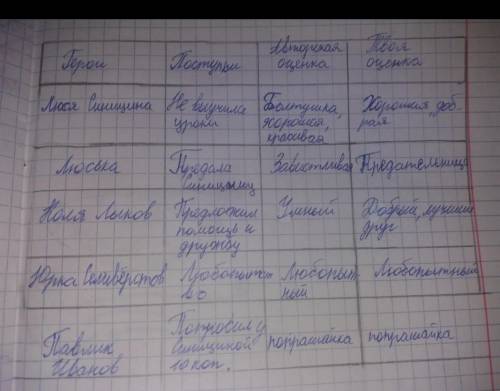 Герои Поступки Авторская оценка Твоя оценка
Люся Синицина Не выучила уроки Болтушка, хорошая, красивая Хорошая, добрая
Люська Предала Завистливая Предательница
Коля Лыков Предложил помощь и дружбу Умный Добрый, лучший друг
Юрка Селивёрстов Любопытный Любопытный
Павлик Иванов Попросил у Синициной 10 коп. попрашайка попрашайка